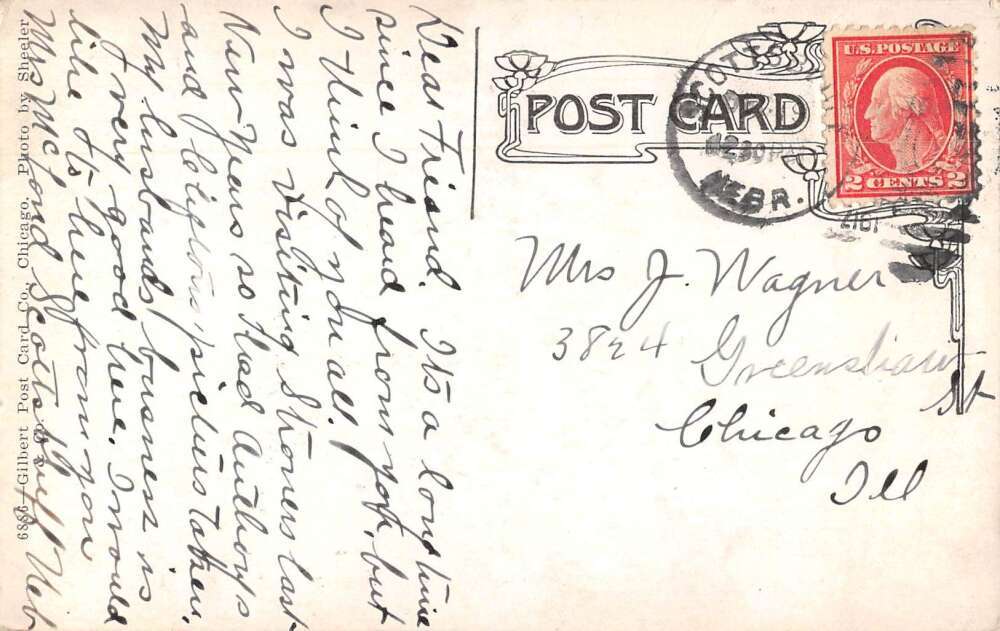 Dear Friend. Its a long time
since I heard from you, but
I think of you all.
I was visiting Stones last
New Years so I had Anthonys
and Cliftons pictures taken.
My husbands business is
very good here. I would
like to hear from you
Mrs McCond Scottsbluff Neb
6886—Gilbert Post Card Co., Chicago. Photo by Sheeler
POST CARD
SCOTTSB
12 30 PM
NEBR.
U.S. POSTAGE
2 CENTS 2
Mrs J. Wagner
3824
Greenshaw
St
Chicago
Ill